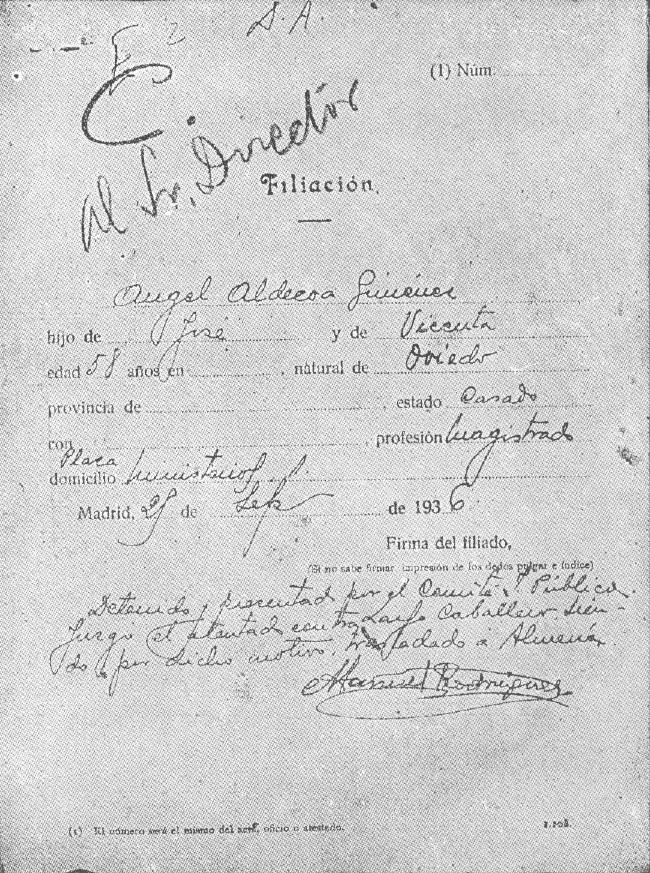 S. A.
(1) Núm.
C.
Al Sr. Director
Filiación.
Angel Aldecoa Giménez
hijo de José y de Vicenta
edad 58 años en , natural de Oviedo
provincia de , estado Casado
con , profesión Magistrado
Plaza
domicilio Ministerios
Madrid, 25 de Sep de 1936
Firma del filiado,
(Si no sabe firmar, impresión de los dedos pulgar e índice)
Detenido y presentado por el Comité S. Público.
Juzgó el atentado contra Largo Caballero. Sien-
do, por dicho motivo, trasladado a Almería.
Manuel Rodríguez
(1) El número será el mismo del acta, oficio o atestado.